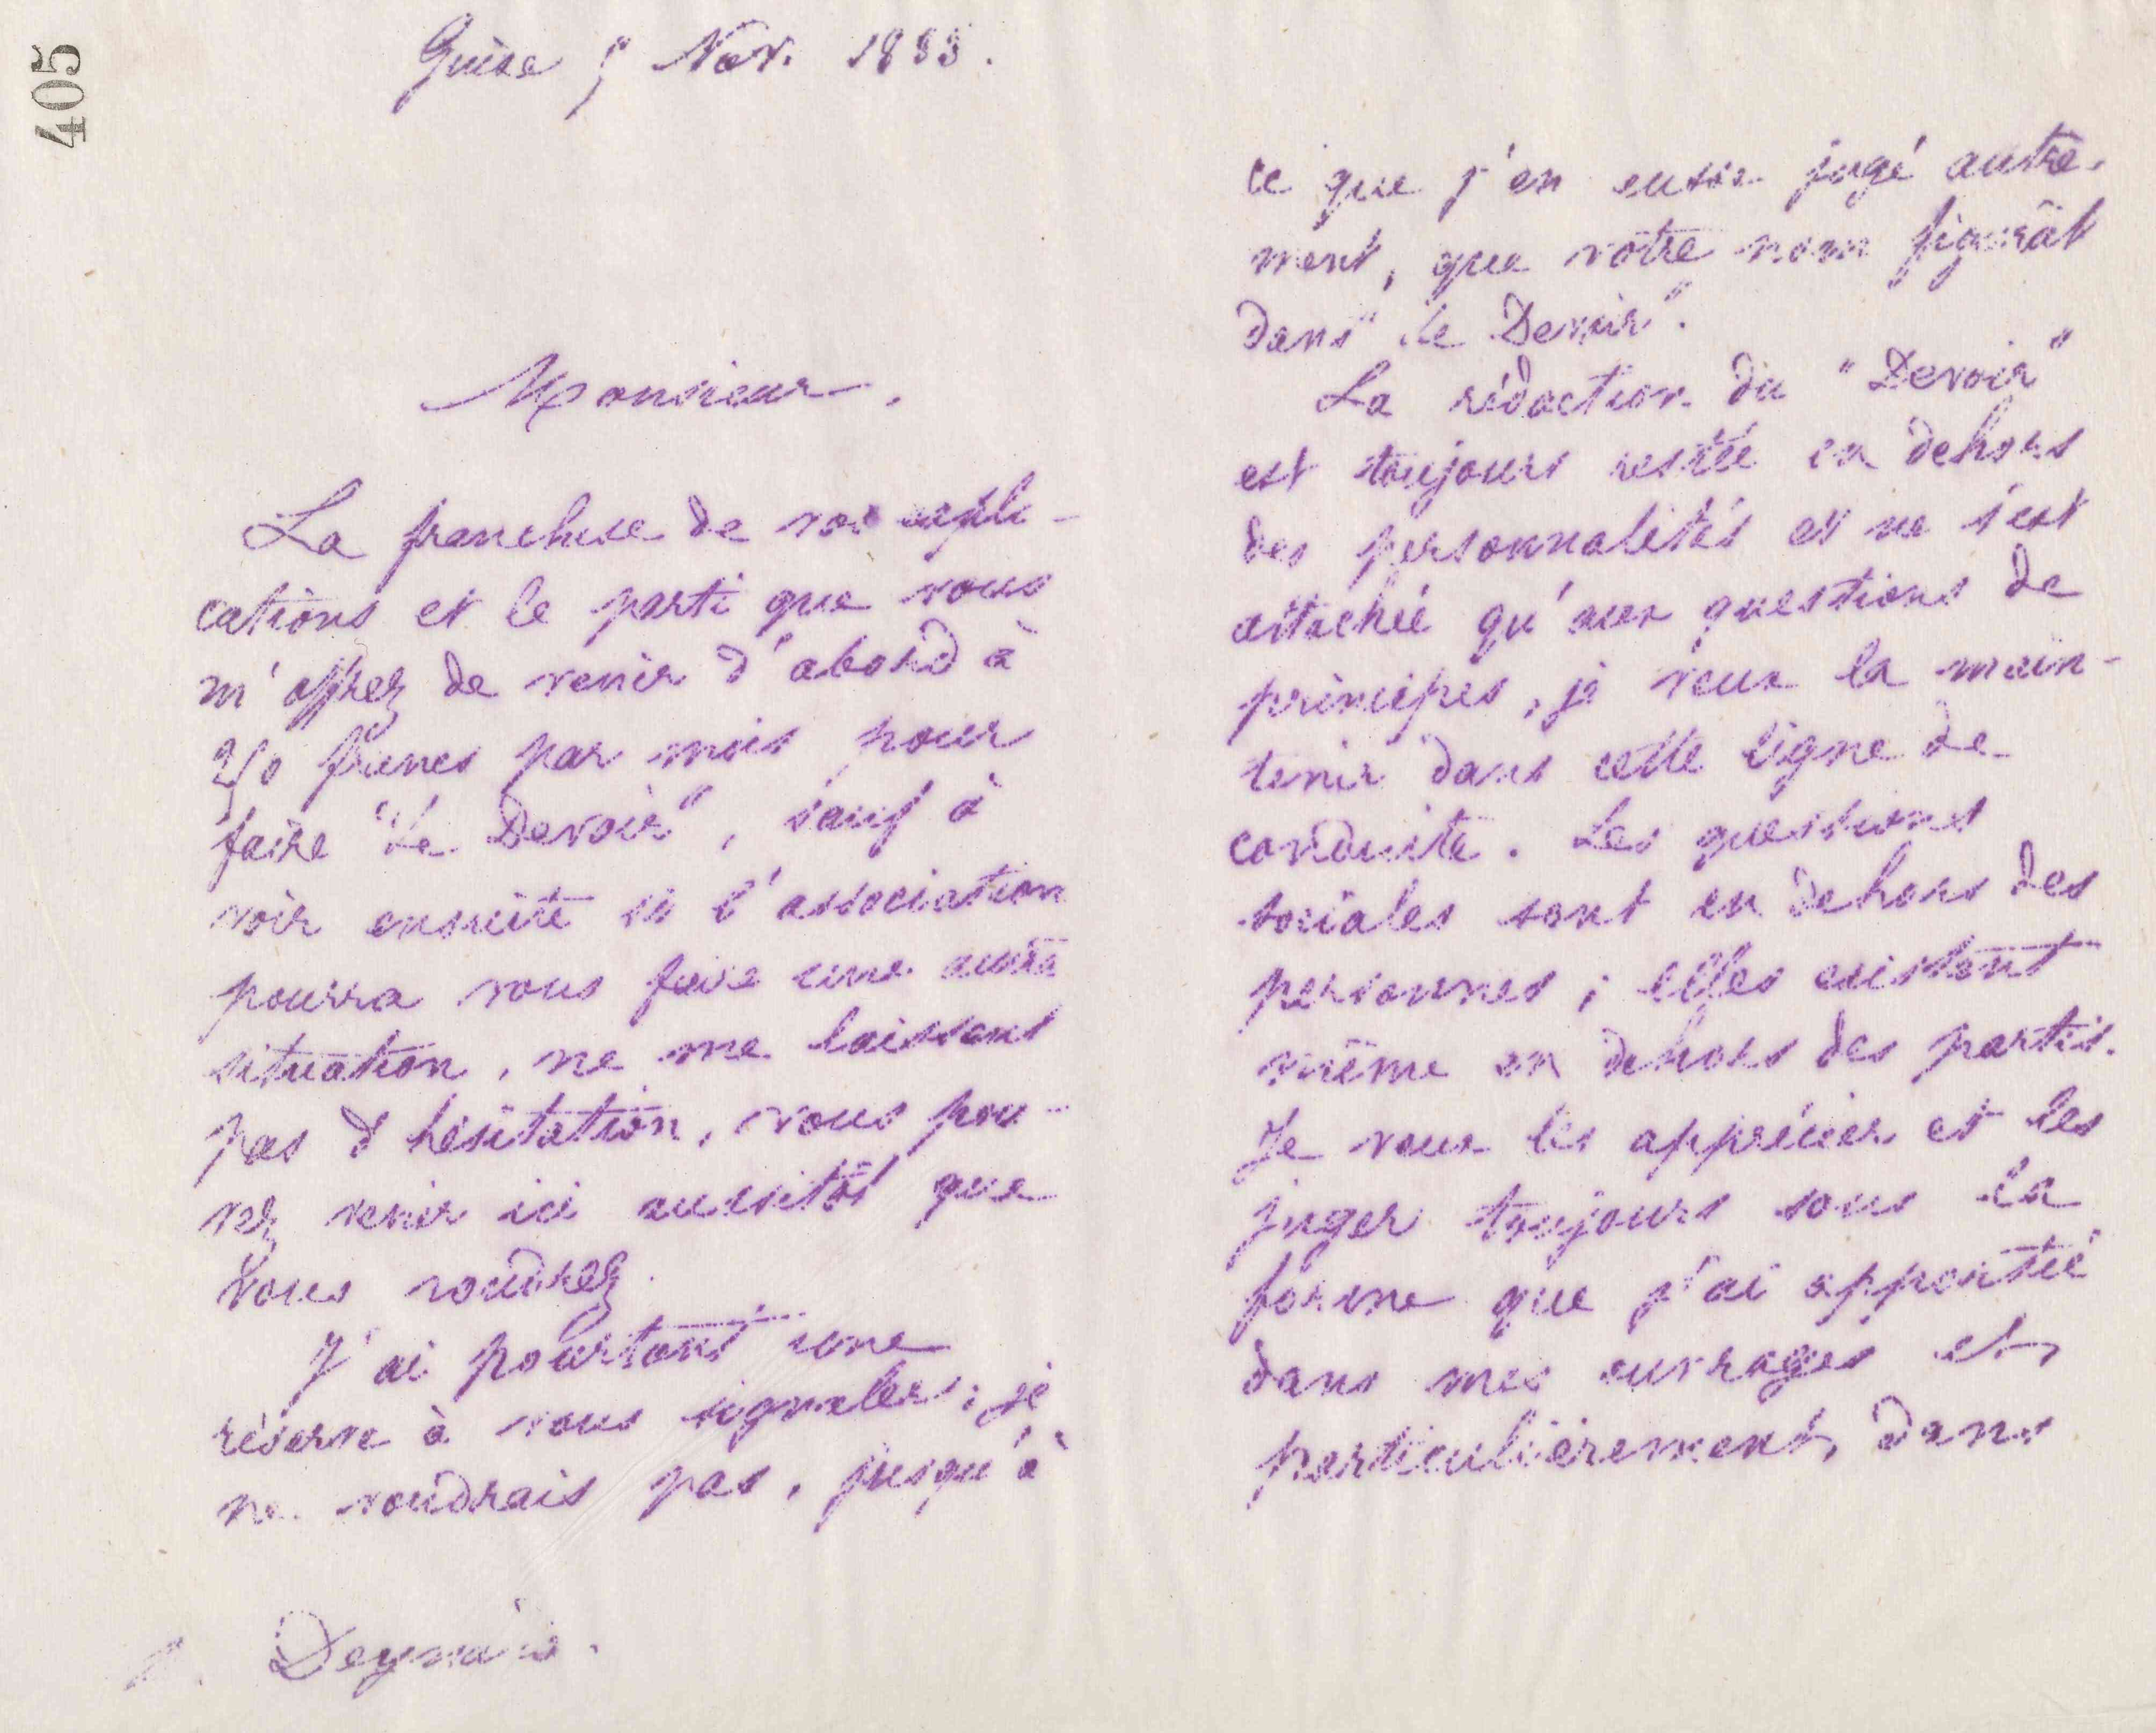 405
Guise 5 Nov. 1883.
Monsieur,
La franchise de vos expli-
cations et le parti que vous
m'offrez de venir d'abord à
250 francs par mois pour
faire "Le Devoir", sauf à
voir ensuite si l'association
pourra vous faire une autre
situation, ne me laissant
pas d'hésitation, vous pou-
vez venir ici aussitôt que
vous voudrez.
J'ai pourtant une
réserve à vous signaler; je
ne voudrais pas, jusqu'à
Deynaud.
ce que j'en eusse jugé autre-
ment, que votre nom figurât
dans "Le Devoir".
La rédaction du "Devoir"
est toujours restée en dehors
des personnalités et ne s'est
attachée qu'aux questions de
principes, je veux la main-
tenir dans cette ligne de
conduite. Les questions
sociales sont en dehors des
personnes; elles existent
même en dehors des partis.
Je veux les apprécier et les
juger toujours sous la
forme que j'ai apportée
dans mes ouvrages et,
particulièrement, dans